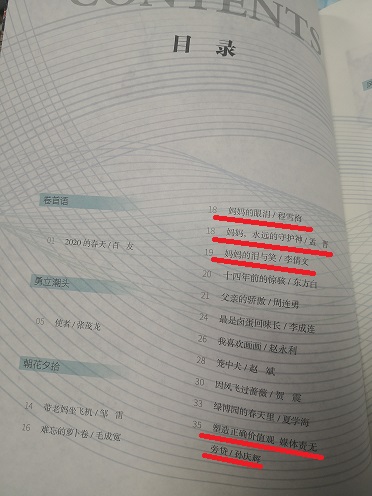 CONTENTS
目 录
卷首语
01 2020的春天/百 女
勇立潮头
05 使者/张茂龙
朝花夕拾
14 带老妈坐飞机/邹 雷
16 难忘的萝卜卷/毛成宽
18 妈妈的眼泪/程雪梅
18 妈妈,永远的守护神/孟 香
19 妈妈的泪与笑/李倩文
20 十四年前的惊骇/东方白
21 父亲的骄傲/周连勇
24 最是卤蛋回味长/李成连
26 我喜欢画画/赵永利
28 笼中犬/赵 斌
30 因风飞过蔷薇/贺 震
33 绿博园的春天里/夏学海
35 塑造正确价值观 媒体责无
旁贷/孙庆辉